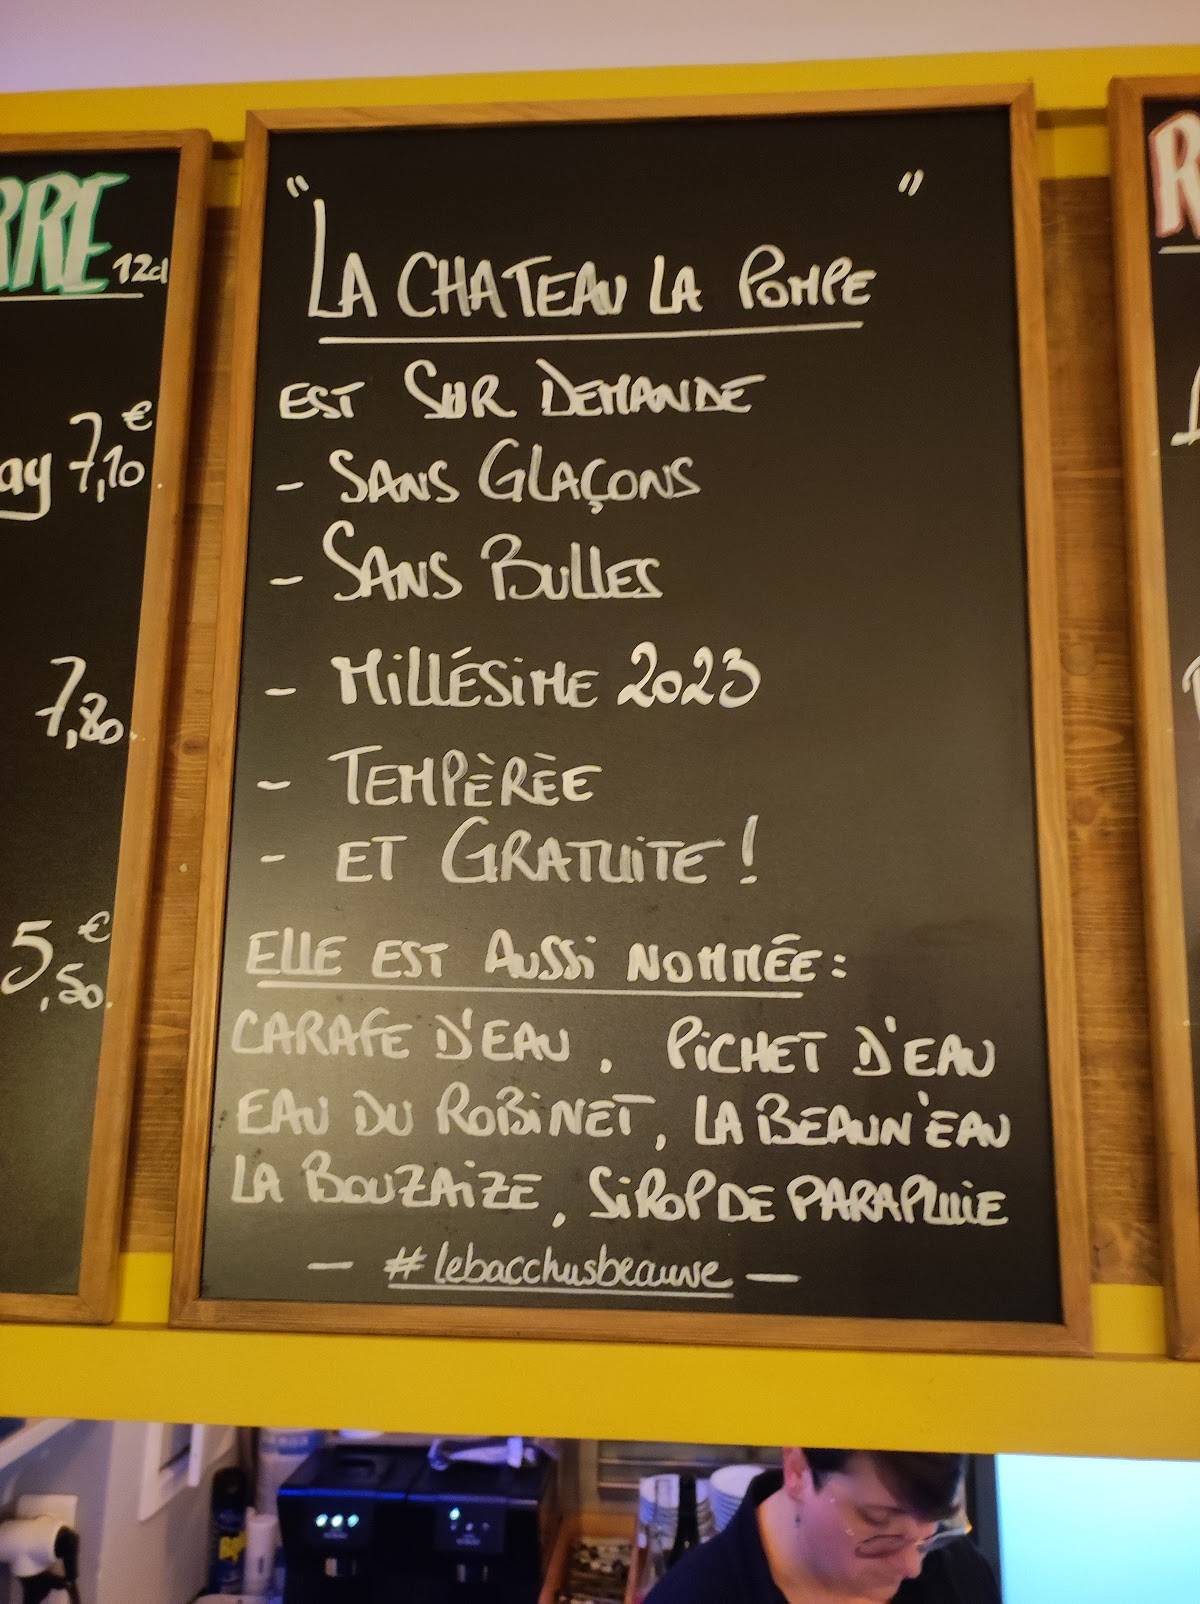 RRE 12cl
ay 7,10€
7,80
5,50€
" "
LA CHATEAU LA POMPE
EST SUR DEMANDE
- SANS GLAÇONS
- SANS BULLES
- MILLÉSIME 2023
- TEMPÈRÈE
- ET GRATUITE !
ELLE EST AUSSI NOMMÉE :
CARAFE D'EAU . PICHET D'EAU
EAU DU ROBINET, LA BEAUN'EAU
LA BOUZAIZE, SIROP DE PARAPLUIE
— #lebacchusbeaune —
R